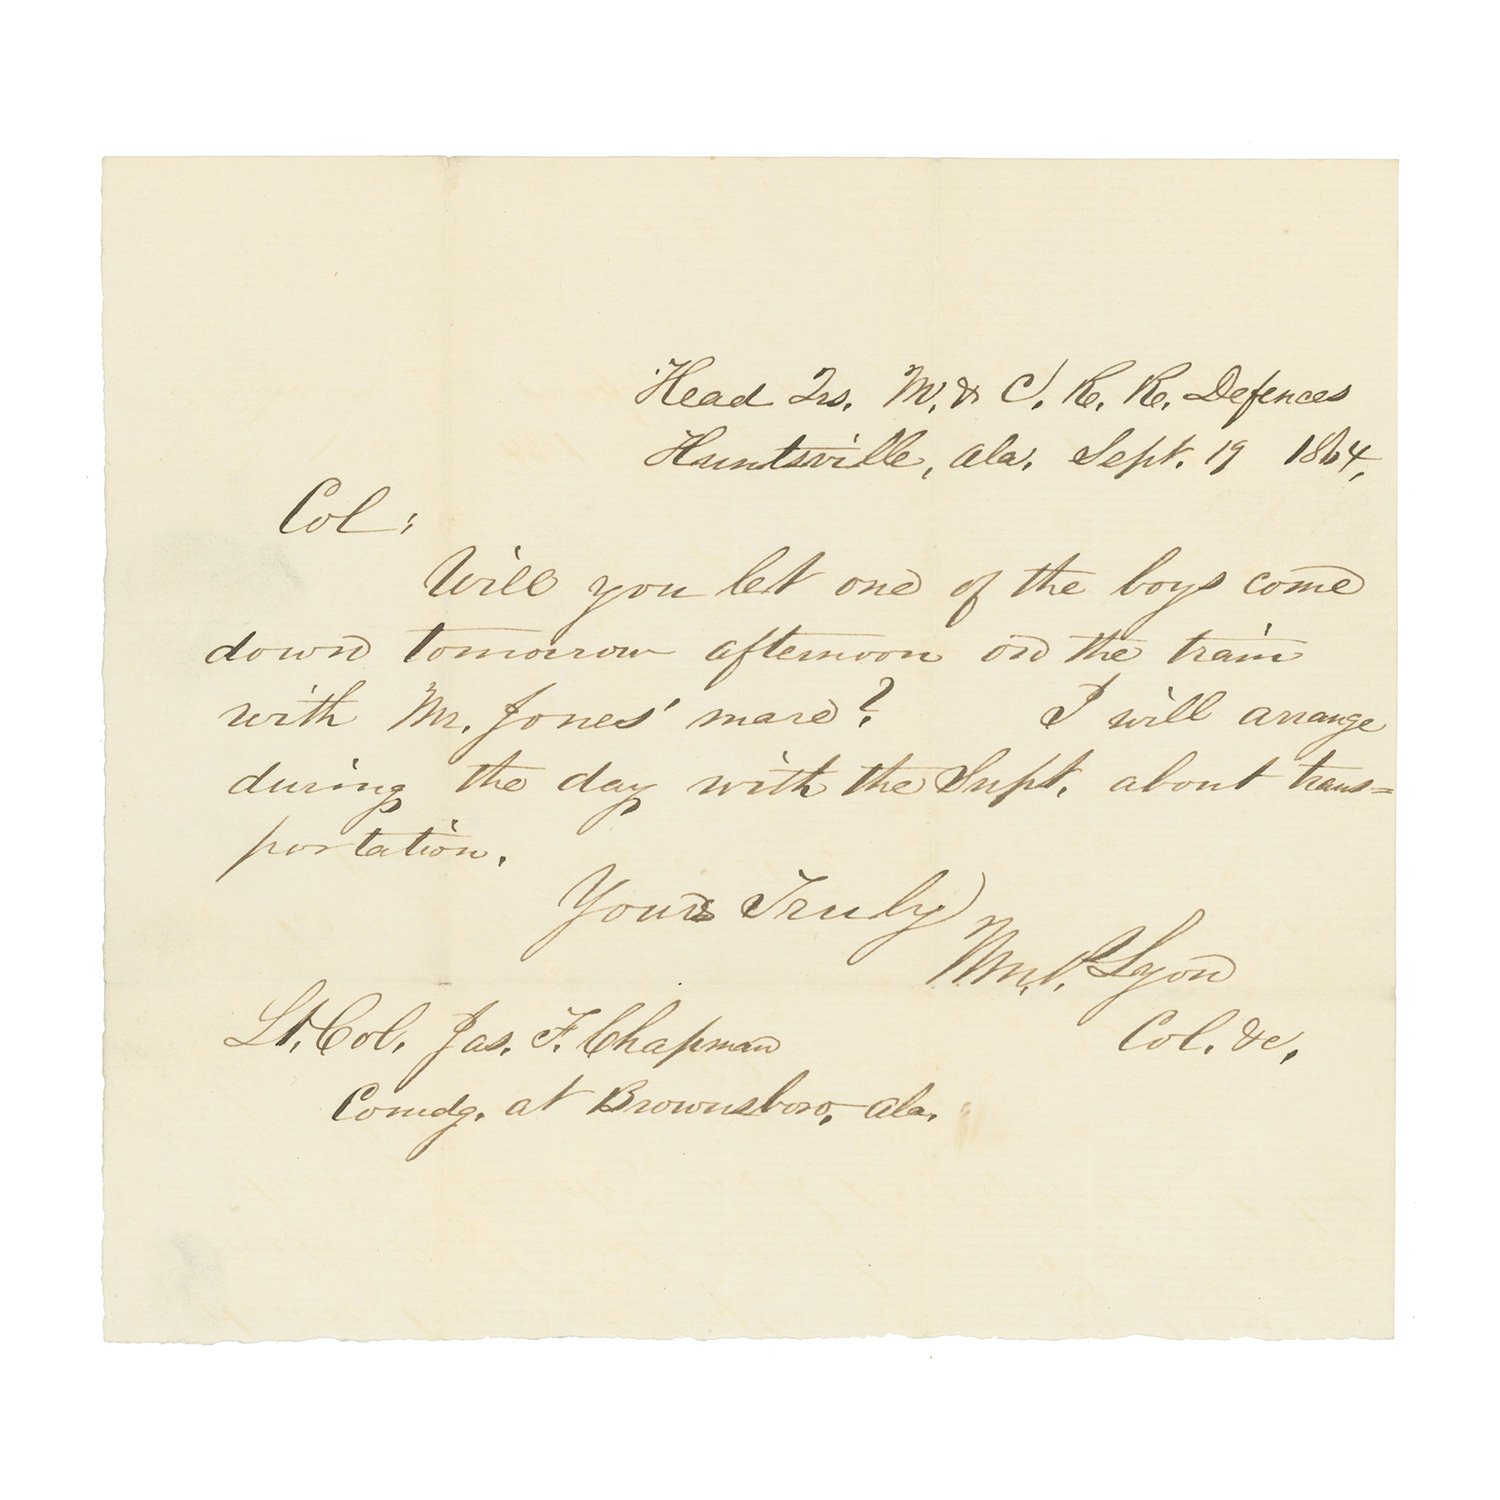 Head Qrs. M. & C. R. R. Defences
Huntsville, Ala. Sept. 19 1864,
Col:
Will you let one of the boys come
down tomorrow afternoon on the train
with Mr. Jones' mare? I will arrange
during the day with the Supt. about trans=
portation.
Yours Truly
Wm. P. Lyon
Col. &c.
Lt. Col. Jas. F. Chapman
Comdg. at Brownsboro, Ala.